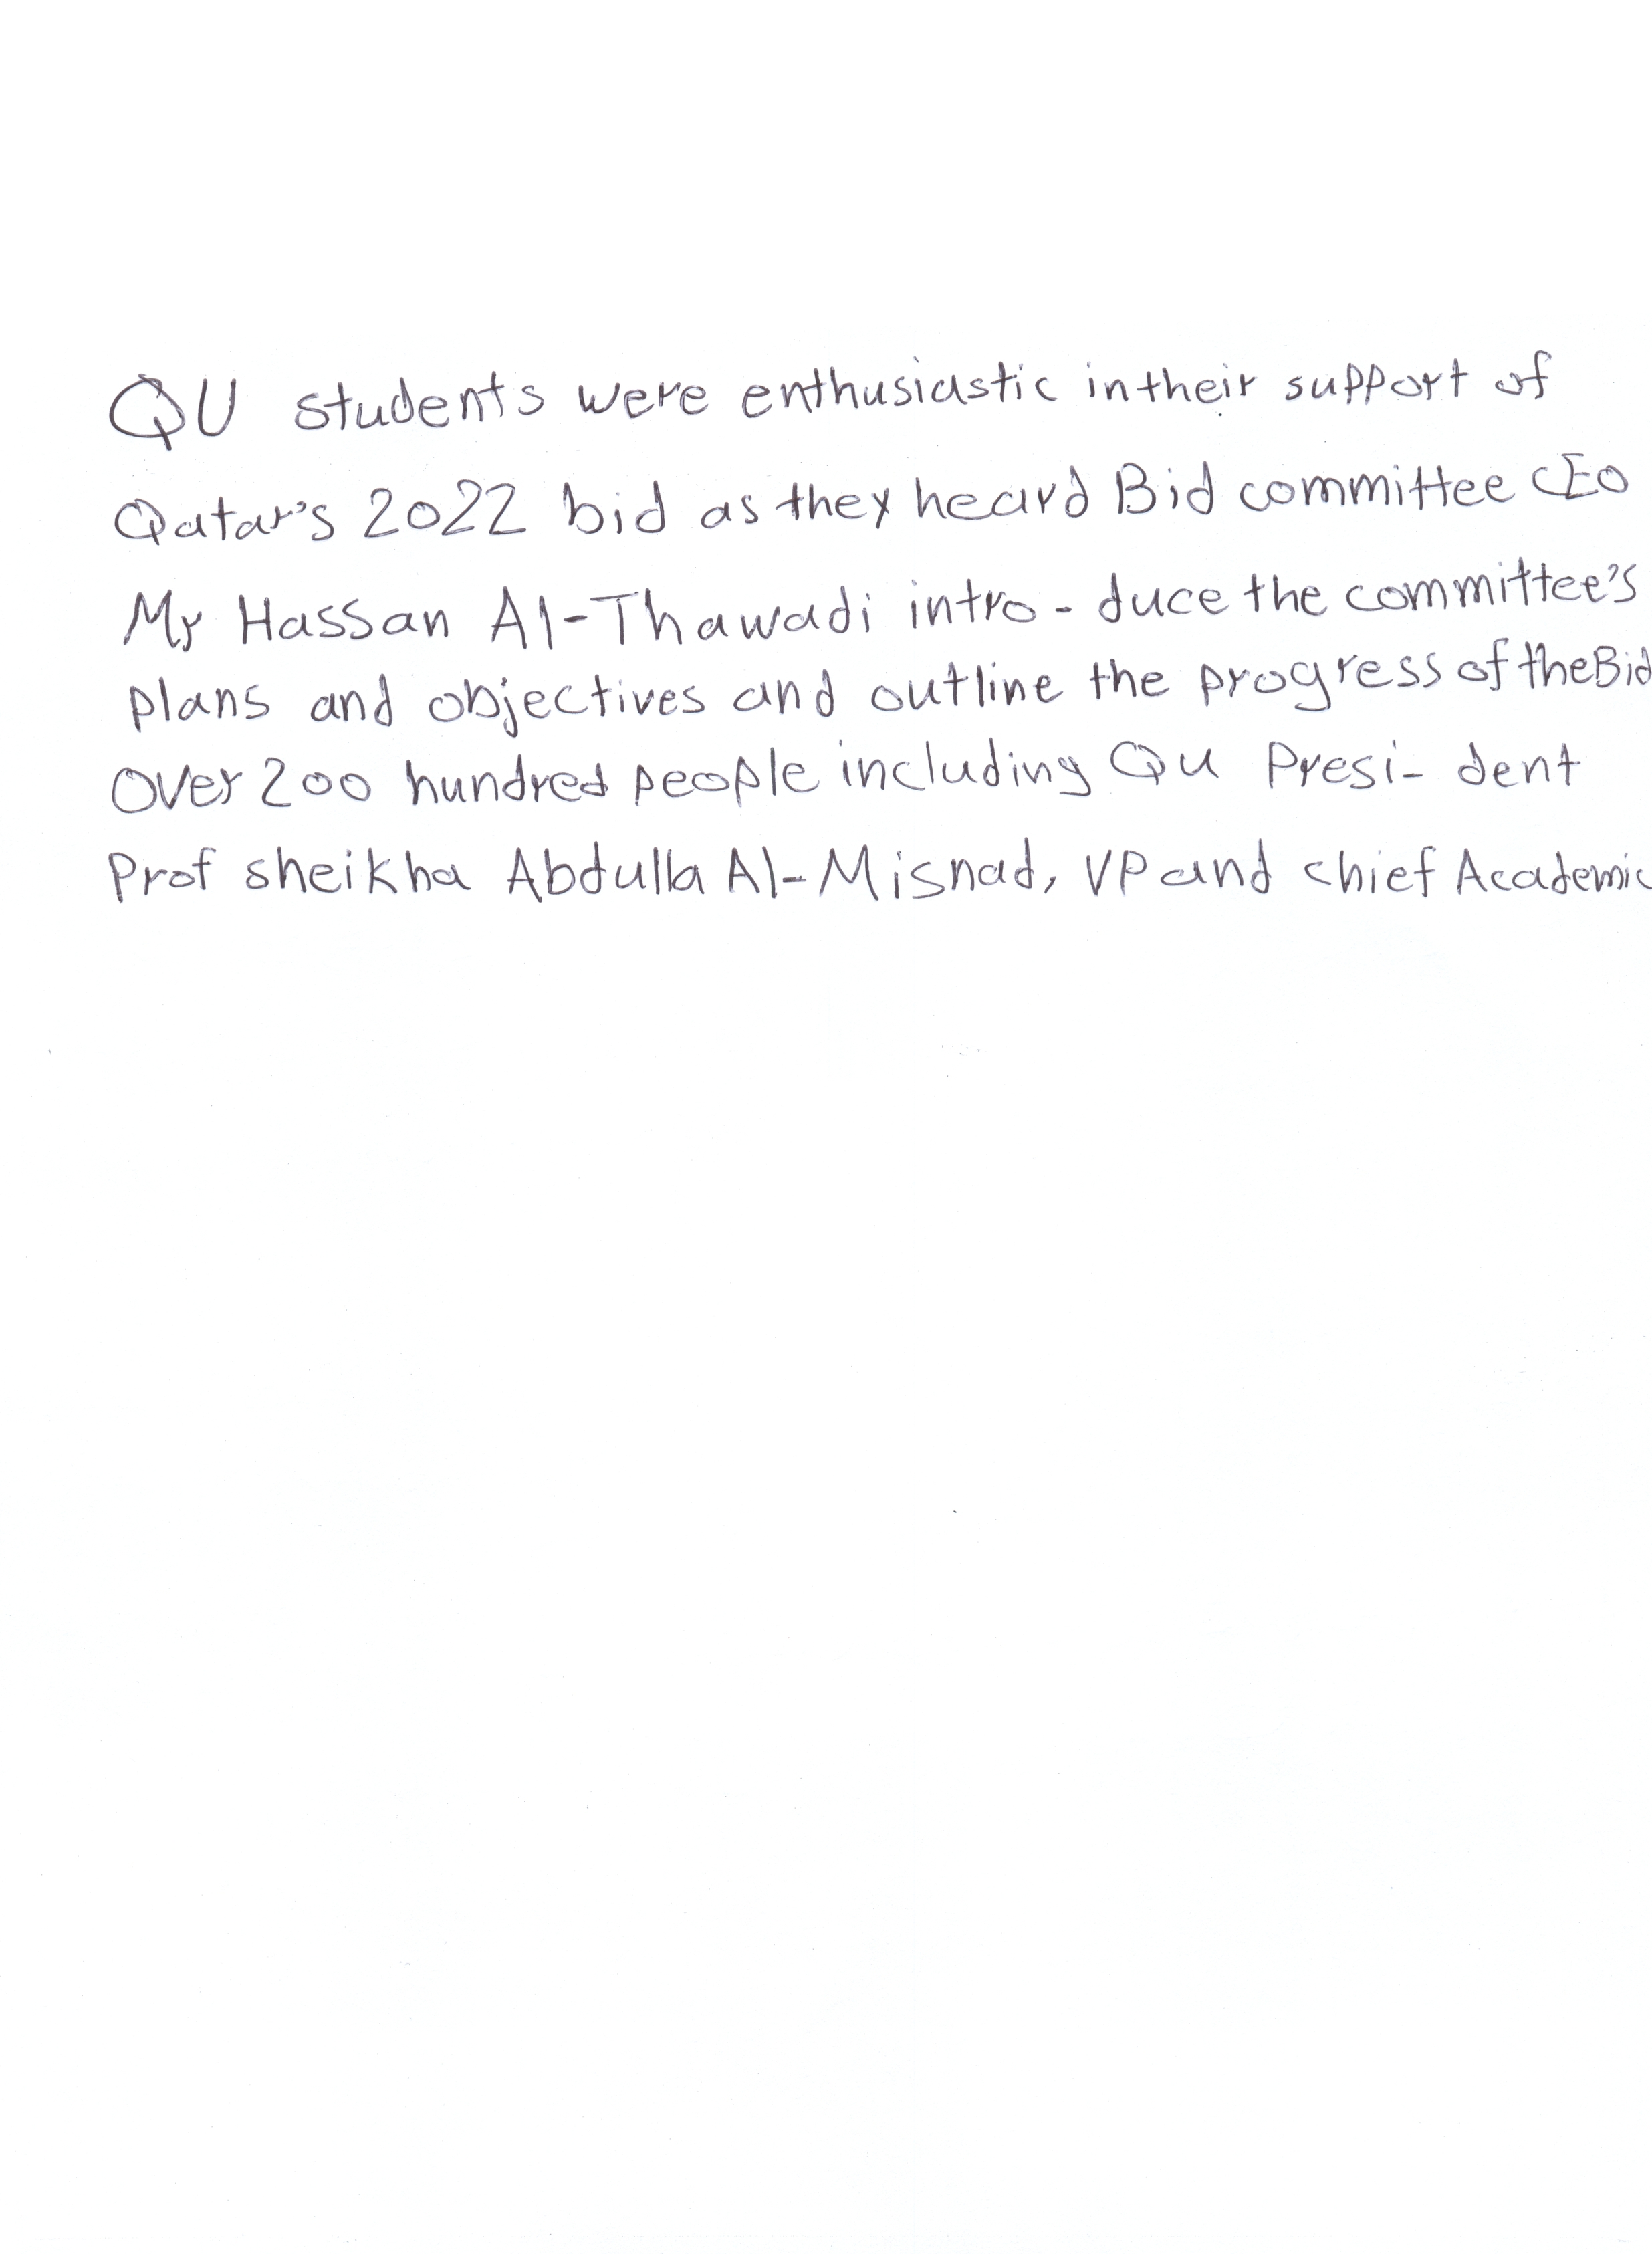 QU students were enthusiastic in their support of
Qatar's 2022 bid as they heard Bid committee CEO
Mr Hassan Al-Thawadi intro - duce the committee's
plans and objectives and outline the progress of the Bid
Over 200 hundred people including QU Presi- dent
Prof sheikha Abdulla Al-Misnad, VP and chief Academic